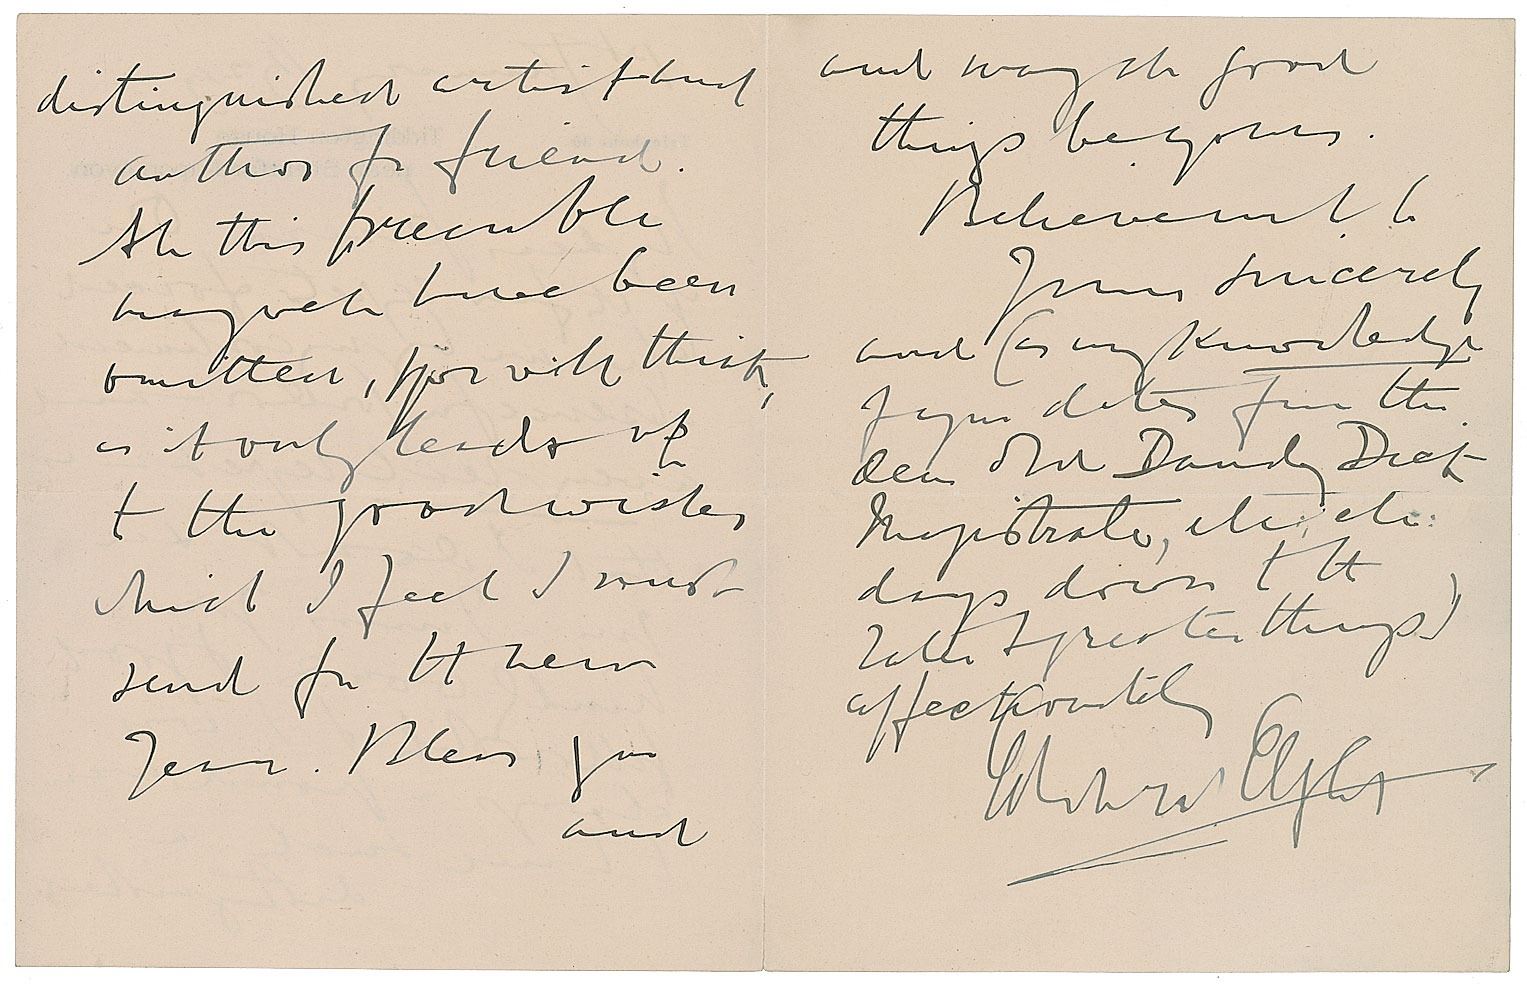 distinguished artist and
author for friend.
All this preamble
may well have been
omitted, you will think,
as it only leads up
to the good wishes
which I feel I must
send for the New
Year. Bless you
and
and may all good
things be yours.
Believe me to be
Yours sincerely
and (as my knowledge
of you dates from the
dear old Dandy Dick
Magistrate, etc., etc.
days down to the
later & greater things)
affectionately
Edward Elgar